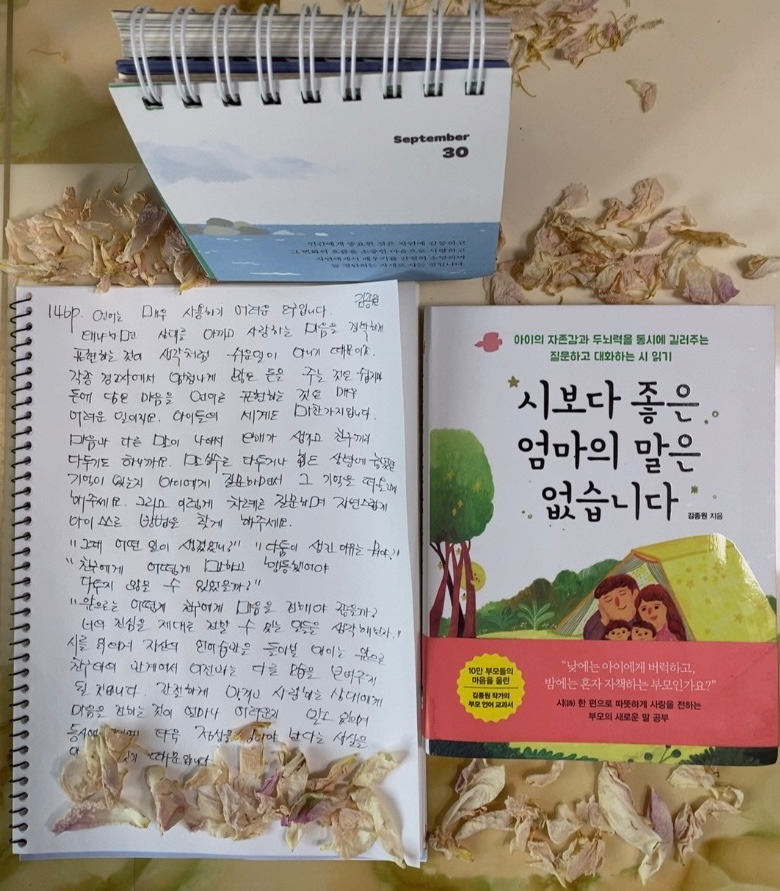 September
30
인간에게 중요한 것은 자연에 감동하고
그 변화의 흐름을 소중한 마음으로 사랑하고
자연에게서 배우기를 간절히 소망하며
146p. 언어는 매우 사용하기 어려운 도구입니다. 김종원
왜냐하면 상대를 아끼고 사랑하는 마음을 정확하게
표현하는 것이 생각처럼 쉬운일이 아니기 때문이죠.
각종 경조사에서 않은 돈을 주는 것은 쉽지만
돈에 담은 마음을 언어로 표현하는 것은 매우
어려운 일이지요. 아이들의 세계도 마찬가지입니다.
마음과 다른 말이 나와서 오해가 생기고 친구끼리
다투기도 하니까요. 말실수로 다투거나 힘든 상황에
기억이 있는지 아이에게 질문하면서 그 기억을
해주세요. 그리고 이렇게 차례로 질문하며 자연스럽게
아이 스스로 방법을 찾게 해주세요.
"그때 어떤 일이 생겼었니?" "다툼이 생긴 이유는 뭘까?"
"친구에게 어떻게 말하고 행동했어야
다투지 않을 수 있었을까?"
"앞으로는 어떻게 친구에게 마음을 전해야 좋을까?
너의 진심을 제대로 전할 수 있는 말들을 생각해보자."
시를 읽으며 자신의 언어습관을 돌아본 아이는 앞으로
친구와의 관계에서 이전과는 다른 모습을 보여주게
될 겁니다. 간절하게 아끼고 사랑하는 상대에게
마음을 전하는 것이 얼마나 어려운지 알고 있으며
다는 사실을
때문입니다.
아이의 자존감과 두뇌력을 동시에 길러주는
질문하고 대화하는 시 읽기
시보다 좋은
엄마의 말은
없습니다
김종원 지음
10만 부모들의
마음을 울린
김종원 작가의
부모 언어 교과서
"낮에는 아이에게 버럭하고,
밤에는 혼자 자책하는 부모인가요?"
시(詩) 한 편으로 따뜻하게 사랑을 전하는
부모의 새로운 말 공부